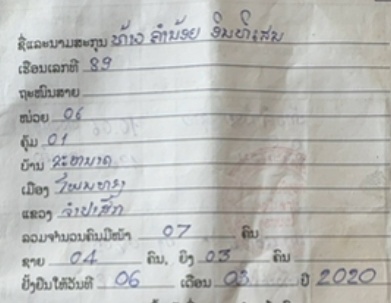 ຊື່ແລະນາມສະກຸນ ທ້າວ ຄຳນ້ອຍ
ເຮືອນເລກທີ 89
ຖະໜົນສາຍ
ໜ່ວຍ 06
ຄຸ້ມ 01
ບ້ານ
ເມືອງ ໂພນທອງ
ແຂວງ ຈຳປາສັກ
ລວມຈຳນວນຄົນມີໜ້າ 07 ຄົນ
ຊາຍ 04 ຄົນ, ຍິງ 03 ຄົນ
ຢັ້ງຢືນໃຫ້ວັນທີ 06 ເດືອນ 03 ປີ 2020